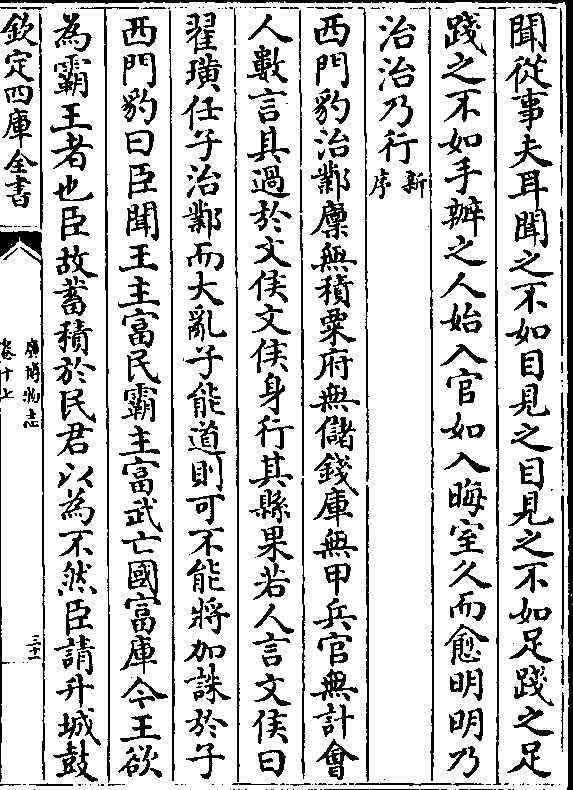 聞從事夫耳聞之不如目見之目見之不如足踐之足
踐之不如手辦之人始入官如入晦室久而愈明明乃
治治乃行新序
西門豹治鄴廩無積粟府無儲錢庫無甲兵官無計會
人數言其過於文侯文侯身行其縣果若人言文侯曰
翟璜任子治鄴而大亂子能道則可不能將加誅於子
西門豹曰臣聞王主富民霸主富武亡國富庫今王欲
為霸王者也臣故蓄積於民君以為不然臣請升城鼓
欽定四庫全書
廣博物志
卷十七
三十一